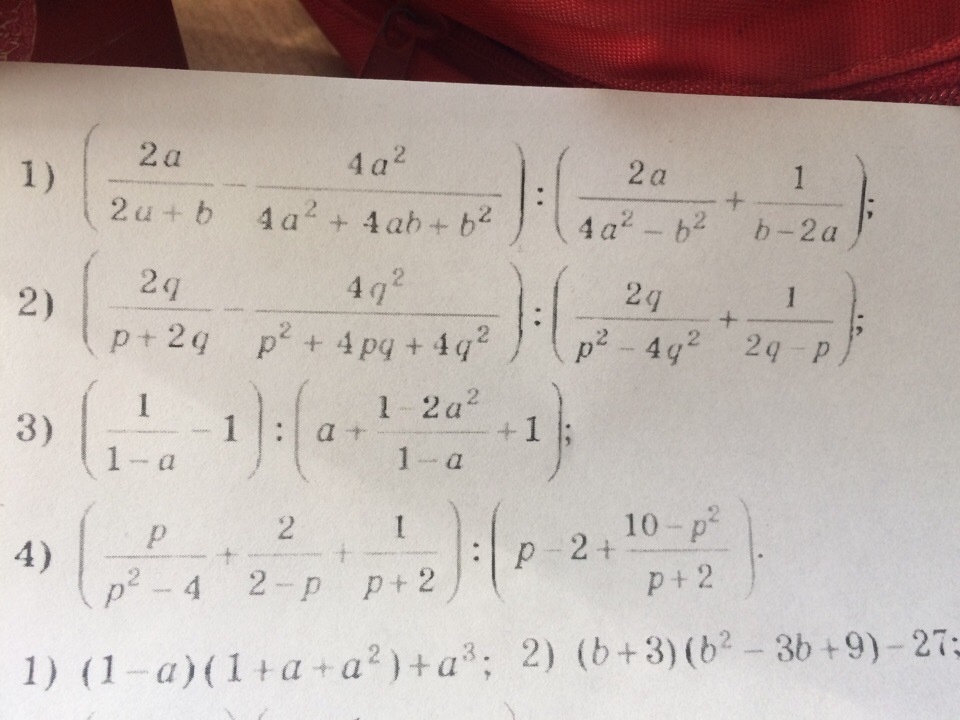 1) (2a/(2a + b) − 4a²/(4a² + 4ab + b²)) : (2a/(4a² − b²) + 1/(b − 2a));
2) (2q/(p + 2q) − 4q²/(p² + 4pq + 4q²)) : (2q/(p² − 4q²) + 1/(2q − p));
3) (1/(1 − a) − 1) : (a + (1 − 2a²)/(1 − a) + 1);
4) (p/(p² − 4) + 2/(2 − p) + 1/(p + 2)) : (p − 2 + (10 − p²)/(p + 2)).
1) (1 − a)(1 + a + a²) + a³; 2) (b + 3)(b² − 3b + 9) − 27;